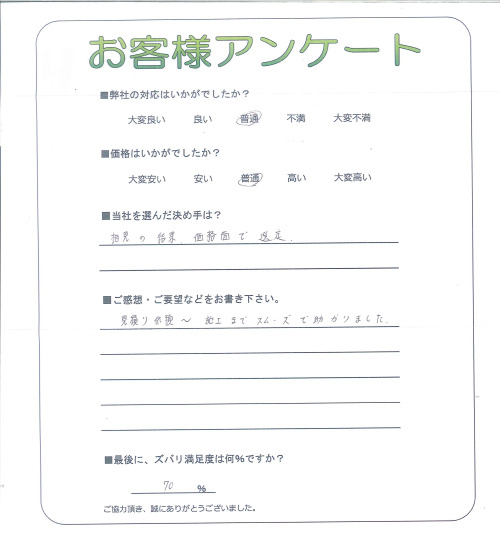 お客様アンケート
■弊社の対応はいかがでしたか？
大変良い 良い 普通 不満 大変不満
■価格はいかがでしたか？
大変安い 安い 普通 高い 大変高い
■当社を選んだ決め手は？
相見の結果、価格面で選定。
■ご感想・ご要望などをお書き下さい。
見積り依頼〜施工までスムーズで助かりました。
■最後に、ズバリ満足度は何%ですか？
70 %
ご協力頂き、誠にありがとうございました。